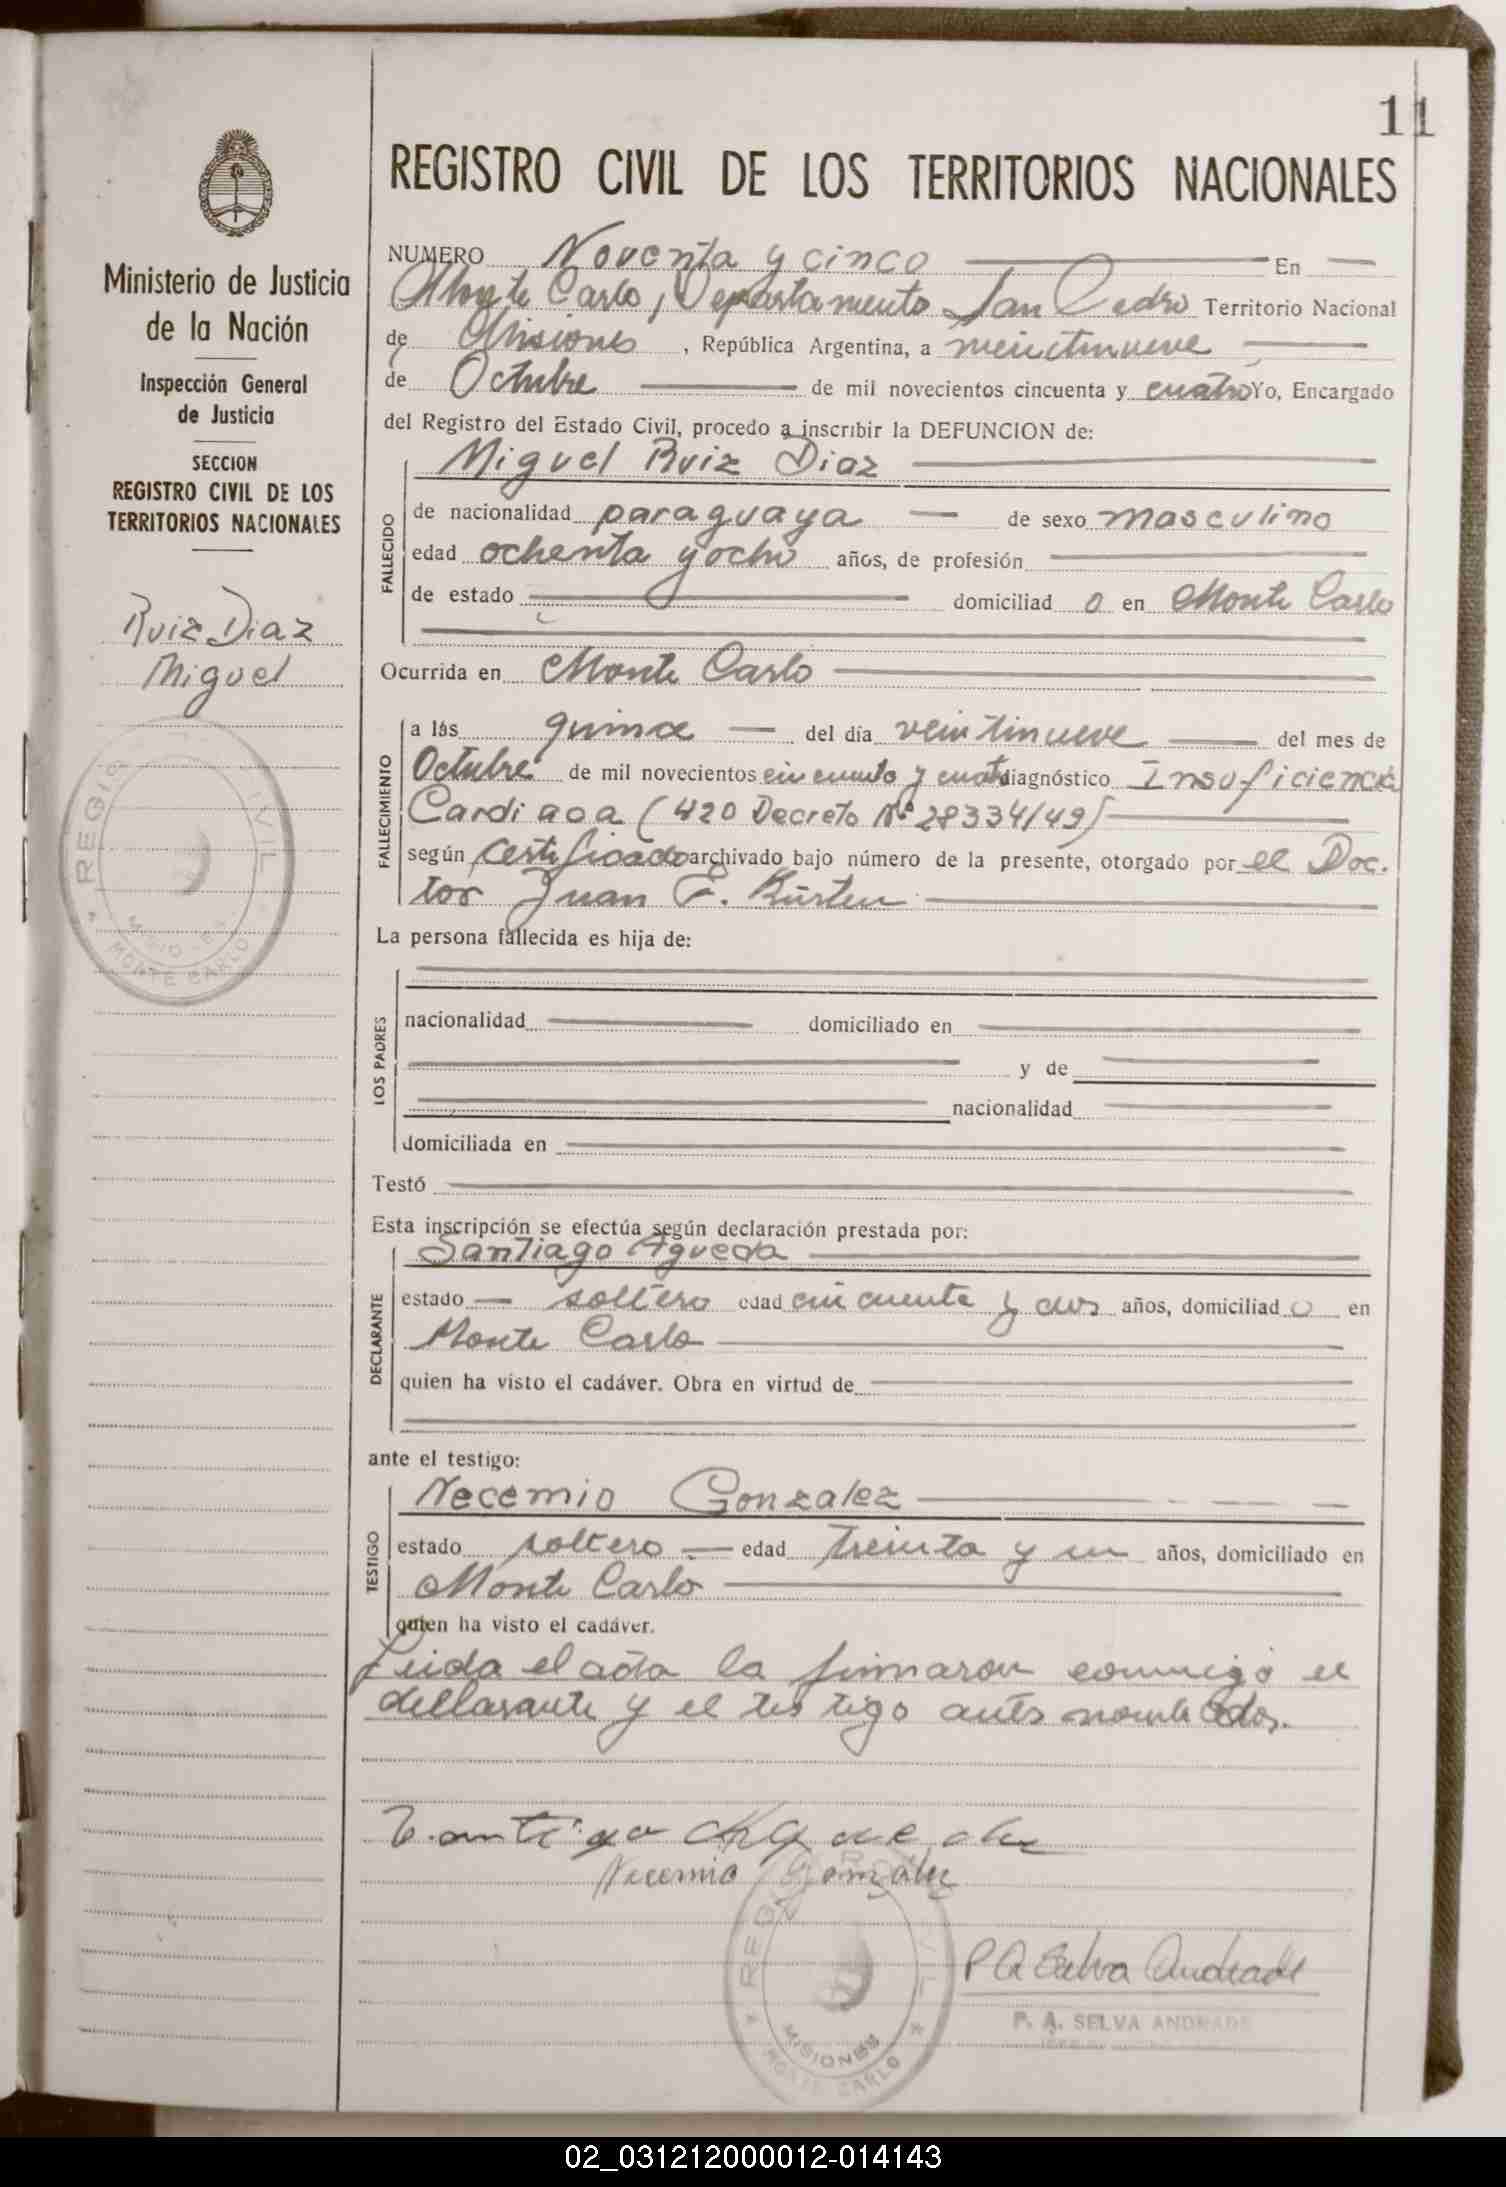 11
REGISTRO CIVIL DE LOS TERRITORIOS NACIONALES
Ministerio de Justicia
de la Nación
Inspección General
de Justicia
SECCION
REGISTRO CIVIL DE LOS
TERRITORIOS NACIONALES
Ruiz Diaz
Miguel
REGISTRO CIVIL
MISIONES
MONTE CARLO
NUMERO Noventa y cinco En
Monte Carlo, Departamento San Pedro Territorio Nacional
de Misiones, República Argentina, a veintinueve
de Octubre de mil novecientos cincuenta y cuatro Yo, Encargado
del Registro del Estado Civil, procedo a inscribir la DEFUNCION de:
Miguel Ruiz Diaz
FALLECIDO
de nacionalidad paraguaya de sexo masculino
edad ochenta y ocho años, de profesión
de estado domiciliad o en Monte Carlo
Ocurrida en Monte Carlo
FALLECIMIENTO
a las quince del día veintinueve del mes de
Octubre de mil novecientos cincuenta y cuatro diagnóstico Insuficiencia
Cardiaca (420 Decreto Nº 28334/49)
según certificado archivado bajo número de la presente, otorgado por el Doc.
tor Juan E. Kürten
La persona fallecida es hija de:
LOS PADRES
nacionalidad domiciliado en
y de
nacionalidad
domiciliada en
Testó
Esta inscripción se efectúa según declaración prestada por:
Santiago Agueda
DECLARANTE
estado soltero edad cincuenta y dos años, domiciliad o en
Monte Carlo
quien ha visto el cadáver. Obra en virtud de
ante el testigo:
Necemio Gonzalez
TESTIGO
estado soltero edad treinta y un años, domiciliado en
Monte Carlo
quien ha visto el cadáver.
Leida el acta la firmaron conmigo el
declarante y el testigo antes nombrados.
Santiago Agueda
Necemio González
REGISTRO CIVIL
MISIONES
MONTE CARLO
P A Selva Andrade
P. A. SELVA ANDRADE
02_031212000012-014143